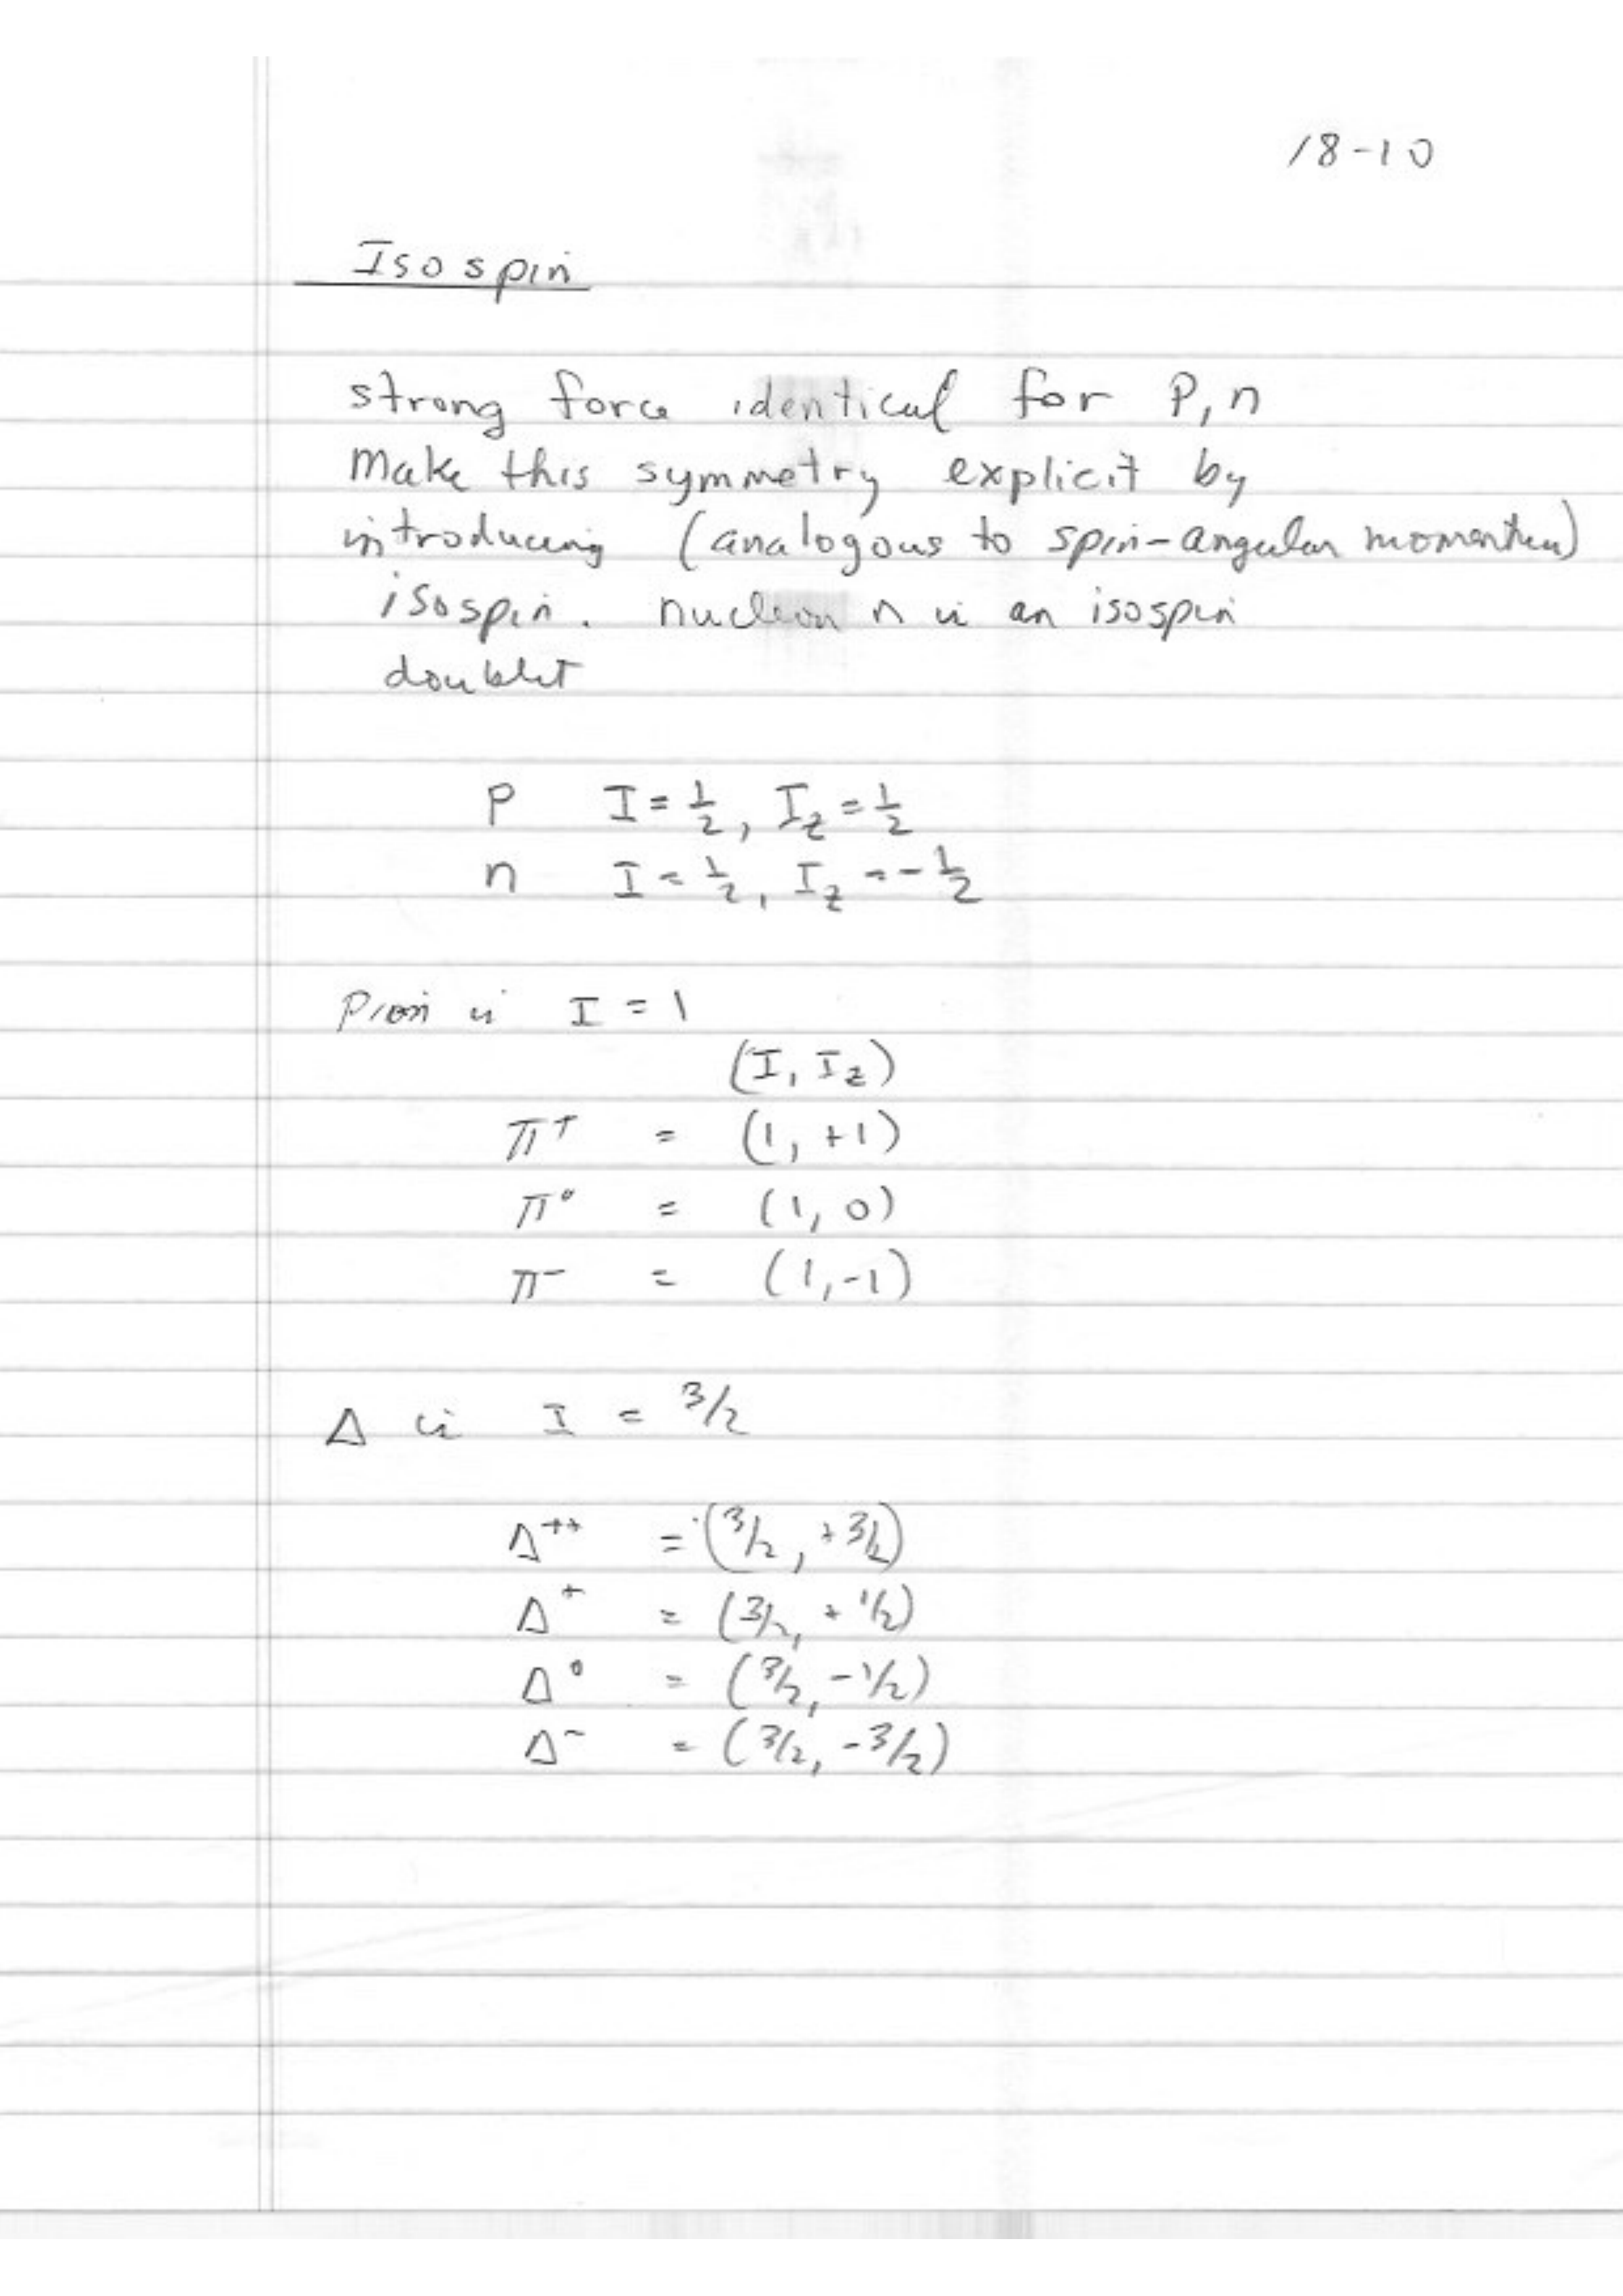 18-10
Isospin
strong force identical for P, n
Make this symmetry explicit by
introducing (analogous to spin-angular momentum)
isospin. nucleon n is an isospin
doublet
P I = 1/2, I_z = 1/2
n I = 1/2, I_z = -1/2
Pion is I = 1
(I, I_z)
π⁺ = (1, +1)
π⁰ = (1, 0)
π⁻ = (1, -1)
Δ is I = 3/2
Δ⁺⁺ = (3/2, +3/2)
Δ⁺ = (3/2, +1/2)
Δ⁰ = (3/2, -1/2)
Δ⁻ = (3/2, -3/2)